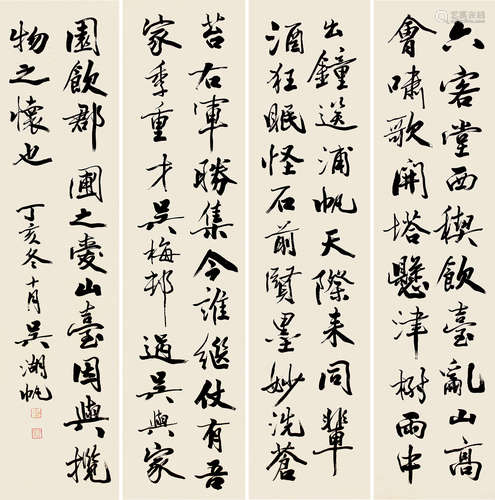 六客堂西禊飲臺亂山高
會嘯歌開塔懸津樹雨中
出鐘送浦帆天際來同輩
酒狂眠怪石前賢墨妙洗蒼
苔右軍勝集今誰繼仗有吾
家季重才吳梅邨過吳興家
園飲郡圃之愛山臺因與攬
物之懷也
丁亥冬十月吳湖帆